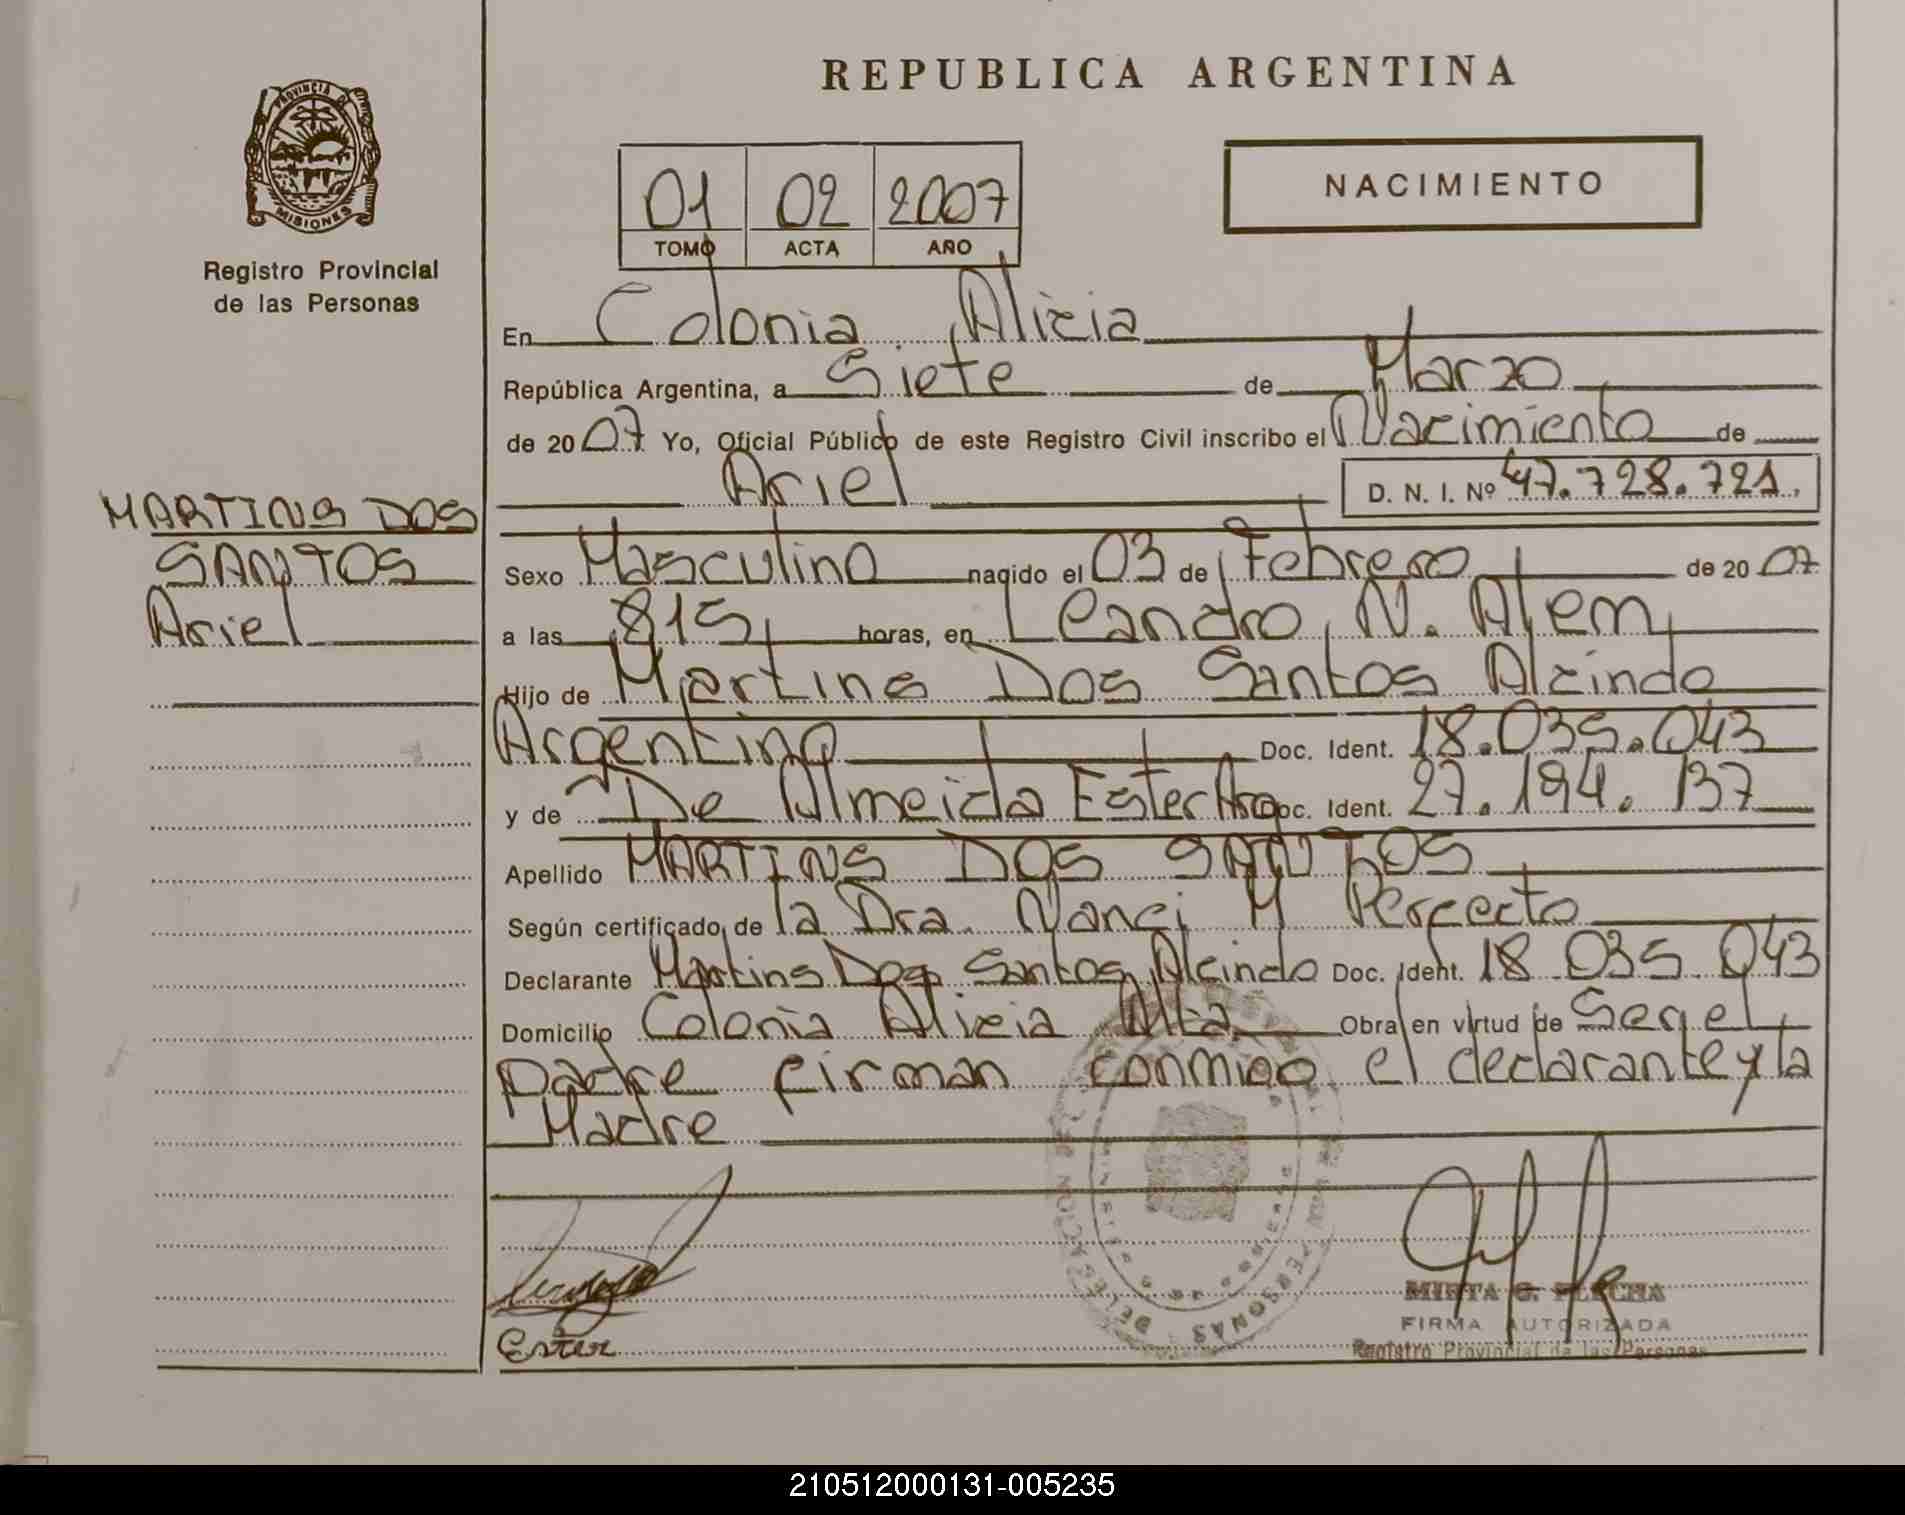 REPUBLICA ARGENTINA
PROVINCIA DE
MISIONES
Registro Provincial
de las Personas
NACIMIENTO
01 02 2007
TOMO ACTA AÑO
En Colonia Alicia
República Argentina, a Siete de Marzo
de 2007 Yo, Oficial Público de este Registro Civil inscribo el Nacimiento de
Ariel D. N. I. Nº 47.728.721.
MARTINS DOS
SANTOS
Ariel
Sexo Masculino nacido el 03 de Febrero de 2007
a las 815 horas, en Leandro N. Alem
Hijo de Martins Dos Santos Alcindo
Argentino Doc. Ident. 18.035.043
y de De Almeida Ester Doc. Ident. 27.194.137
Apellido MARTINS DOS SANTOS
Según certificado de la Dra. Nanci M Perfecto
Declarante Martins Dos Santos Alcindo Doc. Ident. 18 035 043
Domicilio Colonia Alicia Alta Obra en virtud de Ser el
padre firman conmigo el declarante y la
Madre
Ester
MIRTA G. FLECHA
FIRMA AUTORIZADA
Registro Provincial de las Personas
210512000131-005235